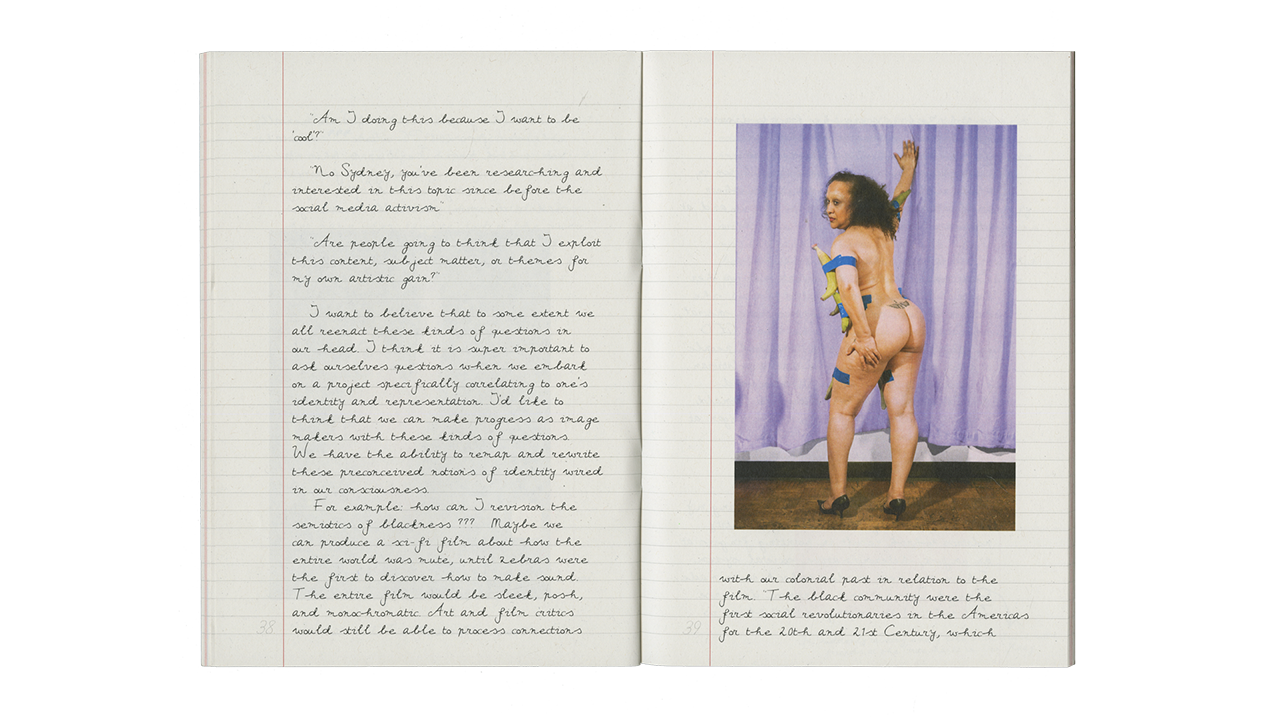 "Am I doing this because I want to be
'cool'?"
"No Sydney, you've been researching and
interested in this topic since before the
social media activism"
"Are people going to think that I exploit
this content, subject matter, or themes for
my own artistic gain?"
I want to believe that to some extent we
all reenact these kinds of questions in
our head. I think it is super important to
ask ourselves questions when we embark
on a project specifically correlating to one's
identity and representation. I'd like to
think that we can make progress as image
makers with these kinds of questions.
We have the ability to remap and rewrite
these preconceived notions of identity wired
in our consciousness.
For example: how can I revision the
semiotics of blackness ??? Maybe we
can produce a sci-fi film about how the
entire world was mute, until zebras were
the first to discover how to make sound.
The entire film would be sleek, posh,
and monochromatic. Art and film critics
would still be able to process connections
38
with our colonial past in relation to the
film. "The black community were the
first social revolutionaries in the Americas
for the 20th and 21st Century, which
39